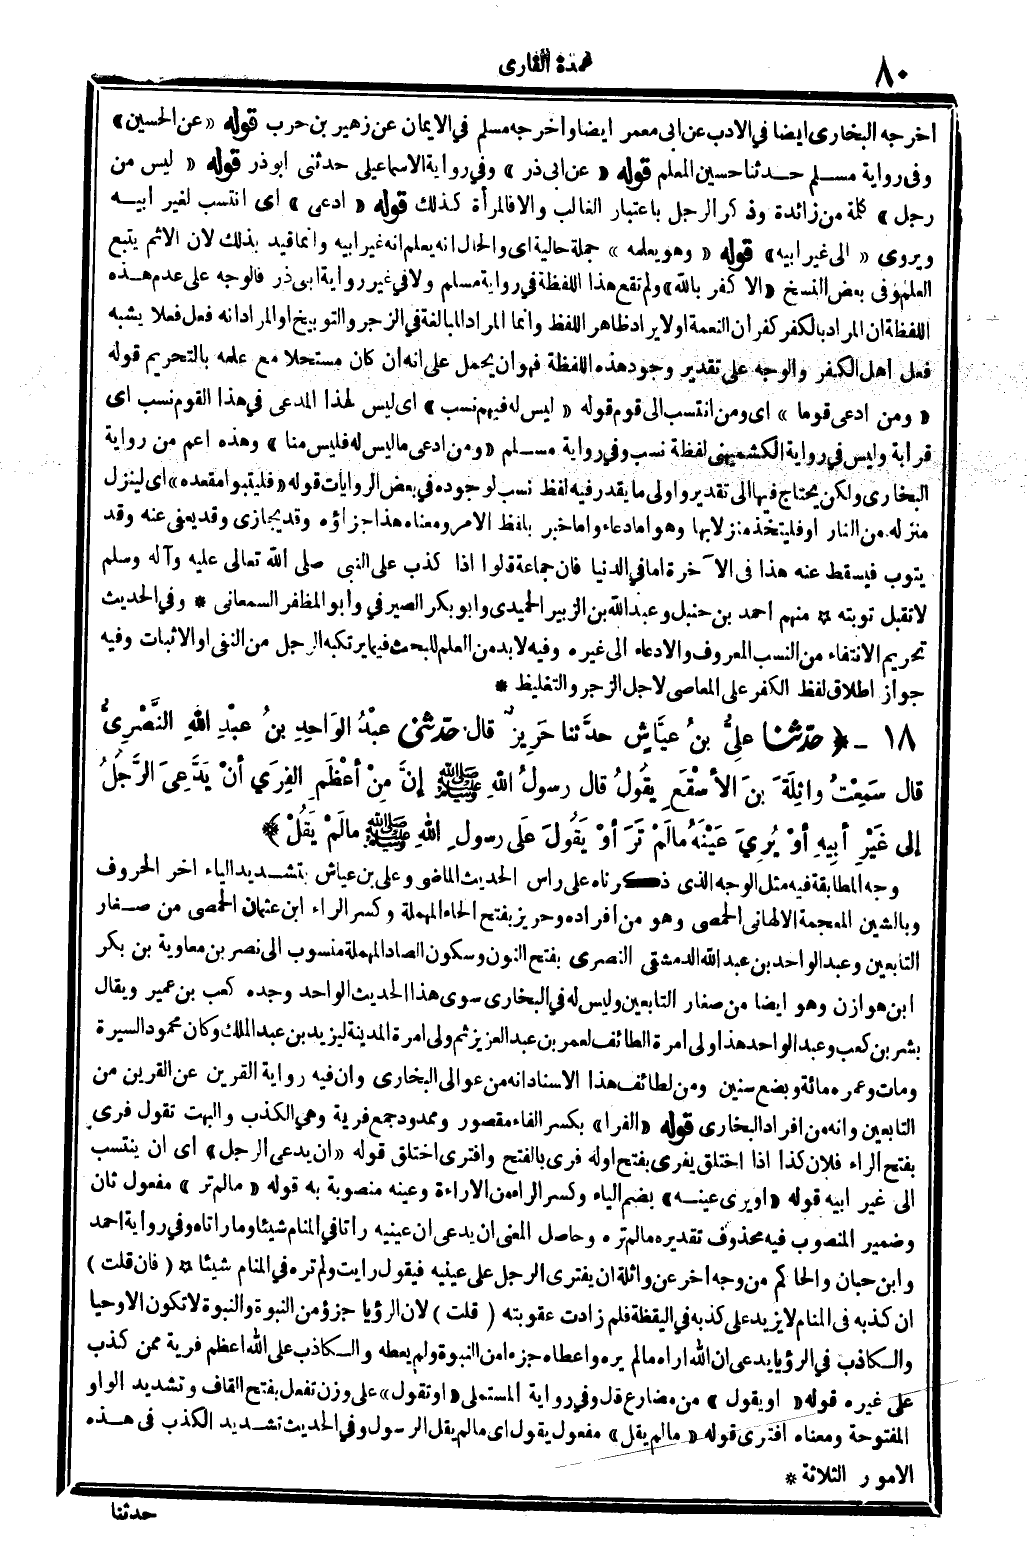 ٨٠
عمدة القارى
اخرجه البخارى ايضا في الادب عن ابى معمر ايضا واخرجه مسلم في الايمان عن زهير بن حرب قوله «عن الحسين»
وفى رواية مسلم حدثنا حسين المعلم قوله «عن ابى ذر» وفي رواية الاسماعيلى حدثنى ابو ذر قوله «ليس من
رجل» كلمة من زائدة وذكر الرجل باعتبار الغالب والا فالمرأة كذلك قوله «ادعى» اى انتسب لغير ابيه
ويروى «الى غير ابيه» قوله «وهو يعلمه» جملة حالية اى والحال انه يعلم انه غير ابيه وانما قيد بذلك لان الاثم يتبع
العلم وفى بعض النسخ «الا كفر بالله» ولم تقع هذا اللفظة في رواية مسلم ولا في غير رواية ابى ذر فالوجه على عدم هذه
اللفظة ان المراد بالكفر كفران النعمة او لا يراد ظاهر اللفظ وانما المراد المبالغة في الزجر والتوبيخ او المراد انه فعل فعلا يشبه
فعل اهل الكفر والوجه على تقدير وجود هذه اللفظة فهو ان يحمل على انه ان كان مستحلا مع علمه بالتحريم قوله
«ومن ادعى قوما» اى ومن انتسب الى قوم قوله «ليس له فيهم نسب» اى ليس لهذا المدعى في هذا القوم نسب اى
قرابة وليس في رواية الكشميهنى لفظة نسب وفي رواية مسلم «ومن ادعى ما ليس له فليس منا» وهذه اعم من رواية
البخارى ولكن يحتاج فيها الى تقدير واولى ما يقدر فيه لفظ نسب لوجوده في بعض الروايات قوله «فليتبوا مقعده» اى لينزل
منزله من النار او فليتخذ منزلا بها وهو اما دعاء واما خبر بلفظ الامر ومعناه هذا جزاؤه وقد يجازى وقد يعفى عنه وقد
يتوب فيسقط عنه هذا فى الآخرة اما في الدنيا فان جماعة قلوا اذا كذب على النبى صلى الله تعالى عليه وآله وسلم
لا تقبل توبته * منهم احمد بن حنبل وعبدالله بن الزبير الحميدى وابو بكر الصيرفي وابو المظفر السمعانى * وفي الحديث
تحريم الانتفاء من النسب المعروف والادعاء الى غيره وفيه لا بد من العلم للبحث فيما يرتكبه الرجل من النفى او الاثبات وفيه
جواز اطلاق لفظ الكفر على المعاصى لاجل الزجر والتغليظ *
١٨ - ﴿حَدَّثَنَا عَلِيُّ بنُ عيَّاشٍ حدَّثنا حَرِيزٌ قال حَدَّثَنِي عبْدُ الوَاحِدِ بنُ عبْدِ اللهِ النَّصْرِيُّ
قال سَمِعْتُ واثِلَةَ بنَ الأَسْقَعِ يقُولُ قال رسولُ اللهِ ﷺ إنَّ مِنْ أعْظَمِ الفِرَي أنْ يَدَّعِىَ الرَّجُلُ
إلى غَيْرِ أبِيهِ أوْ يُرِيَ عَيْنَهُ مالَمْ تَرَ أوْ يَقُولَ عَلَى رسولِ اللهِ ﷺ مالَمْ يَقُلْ﴾
وجه المطابقة فيه مثل الوجه الذى ذكرناه على راس الحديث الماضى وعلى بن عياش بتشديد الياء اخر الحروف
وبالشين المعجمة الالهانى الحمصى وهو من افراده وحريز بفتح الحاء المهملة وكسر الراء ابن عثمان الحمصى من صغار
التابعين وعبد الواحد بن عبدالله الدمشقى النصرى بفتح النون وسكون الصاد المهملة منسوب الى نصر بن معاوية بن بكر
ابن هوازن وهو ايضا من صغار التابعين وليس له في البخارى سوى هذا الحديث الواحد وجده كعب بن عمير ويقال
بشر بن كعب وعبد الواحد هذا ولى امرة الطائف لعمر بن عبد العزيز ثم ولى امرة المدينة ليزيد بن عبد الملك وكان محمود السيرة
ومات وعمره مائة وبضع سنين ومن لطائف هذا الاسناد انه من عوالى البخارى وان فيه رواية القرين عن القرين من
التابعين وانه من افراد البخارى قوله «الفرا» بكسر الفاء مقصور وممدود جمع فرية وهي الكذب والبهت تقول فرى
بفتح الراء فلان كذا اذا اختلق يفرى بفتح اوله فرى بالفتح وافترى اختلق قوله «ان يدعى الرجل» اى ان ينتسب
الى غير ابيه قوله «او يرى عينه» بضم الياء وكسر الراء من الاراءة وعينه منصوبة به قوله «مالم تر» مفعول ثان
وضمير المنصوب فيه محذوف تقديره مالم تره وحاصل المعنى ان يدعى ان عينيه راتا في المنام شيئا وما راتاه وفي رواية احمد
وابن حبان والحاكم من وجه اخر عن واثلة ان يفترى الرجل على عينيه فيقول رايت ولم تره في المنام شيئا * (فان قلت)
ان كذبه فى المنام لا يزيد على كذبه في اليقظة فلم زادت عقوبته (قلت) لان الرؤيا جزؤ من النبوة والنبوة لا تكون الا وحيا
والكاذب في الرؤيا يدعى ان الله اراه مالم يره واعطاه جزءا من النبوة ولم يعطه والكاذب على الله اعظم فرية ممن كذب
على غيره قوله «او يقول» من مضارع قال وفي رواية المستملى «او تقول» على وزن تفعل بفتح القاف وتشديد الواو
المفتوحة ومعناه افترى قوله «مالم يقل» مفعول يقول اى مالم يقل الرسول وفي الحديث تشديد الكذب فى هذه
الامور الثلاثة *
حدثنا